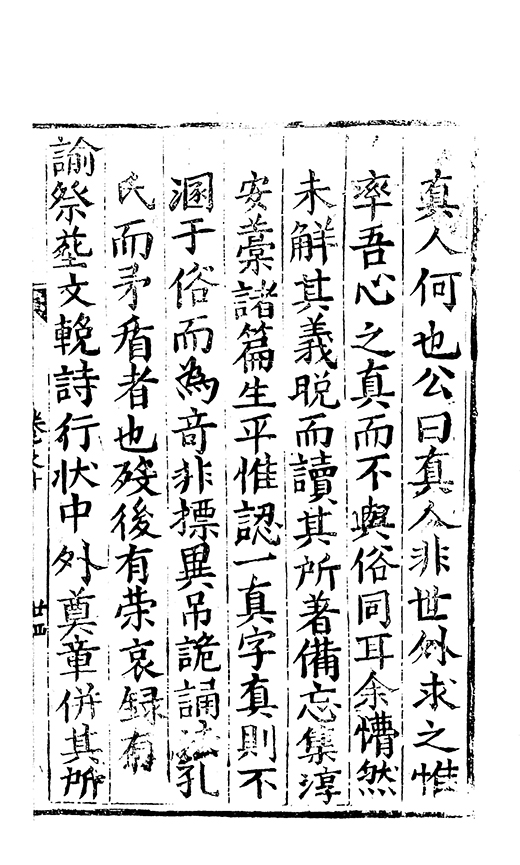 真人何也公曰真人非世外求之惟
率吾心之真而不與俗同耳余懵然
未解其義晩而讀其所著備忘集淳
安藁諸篇生平惟認一真字真則不
溷于俗而為竒非摽異吊詭誦法孔
氏而矛盾者也歿後有荣哀録有
諭祭塟文輓詩行状中外奠章併其所
卷之十
廿四